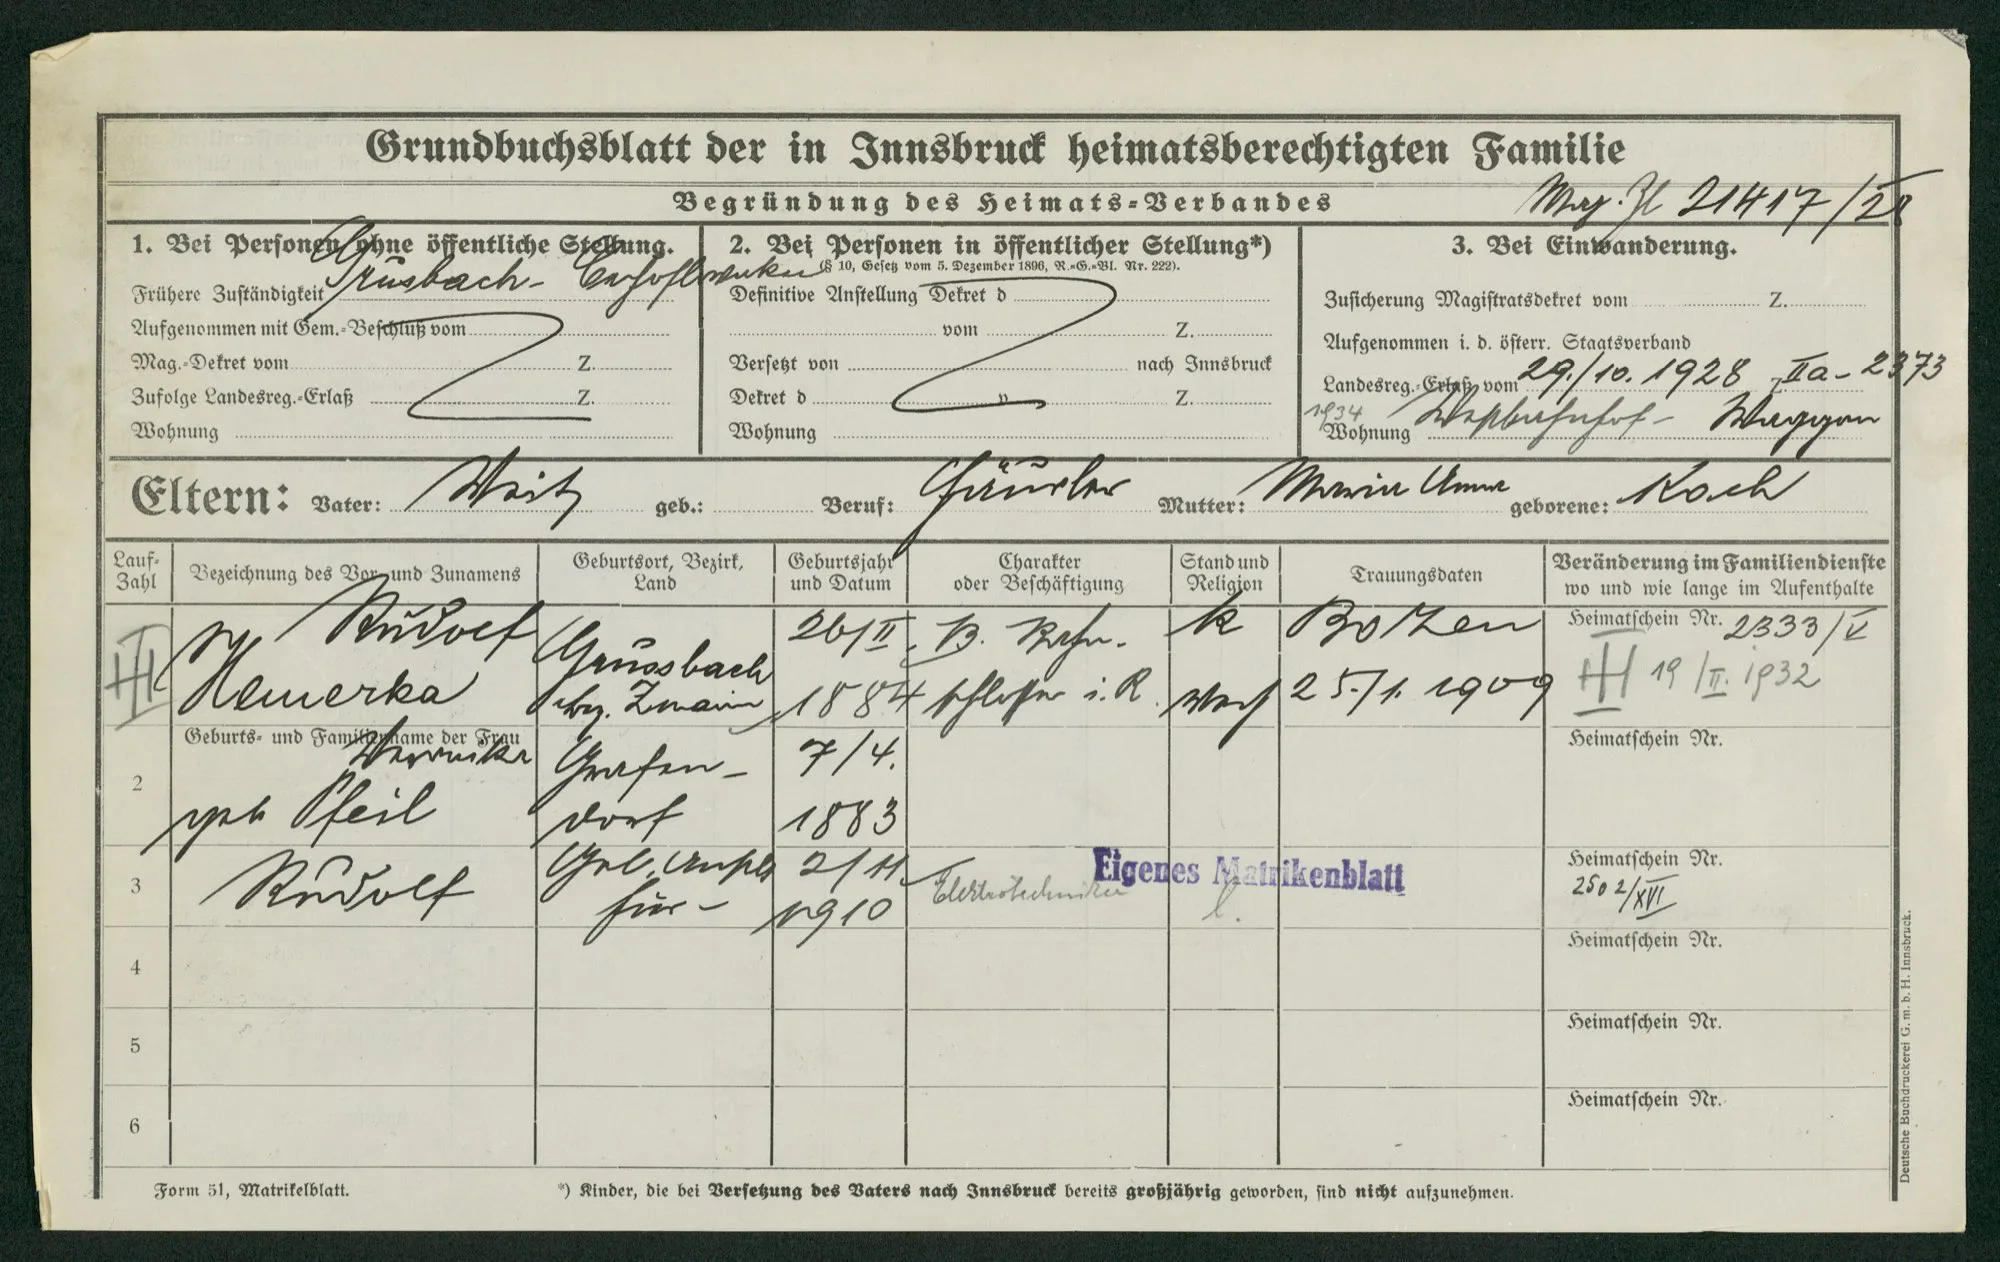 Grundbuchsblatt der in Innsbruck heimatsberechtigten Familie
Begründung des Heimats-Verbandes
Mag. Zl 21417/28
1. Bei Personen ohne öffentliche Stellung.
Frühere Zuständigkeit Grusbach-
Aufgenommen mit Gem.-Beschluß vom
Mag.-Dekret vom Z.
Zufolge Landesreg.-Erlaß Z.
Wohnung
2. Bei Personen in öffentlicher Stellung*)
(§ 10, Gesetz vom 5. Dezember 1896, R.-G.-Bl. Nr. 222).
Definitive Anstellung Dekret d
vom Z.
Versetzt von nach Innsbruck
Dekret d v Z.
Wohnung
3. Bei Einwanderung.
Zusicherung Magistratsdekret vom Z.
Aufgenommen i. d. österr. Staatsverband
Landesreg.-Erlaß vom 29./10. 1928 Z. IIa-2373
1934
Wohnung Westbahnhof- Waggon
Eltern: Vater: Veit geb.: Beruf: Häusler Mutter: Maria Anna geborene: Koch
Lauf-Zahl
Bezeichnung des Vor- und Zunamens
Geburtsort, Bezirk, Land
Geburtsjahr und Datum
Charakter oder Beschäftigung
Stand und Religion
Trauungsdaten
Veränderung im Familiendienste
wo und wie lange im Aufenthalte
Rudolf Grussbach 26/II. B. Bahn- k Bozen Heimatschein Nr. 2333/V
Nemerka bez. Znaim 1884 schlosser i. R. verh 25./1. 1909 19/II. 1932
Geburts- und Familienname der Frau
2 Veronika Grafen- 7/4. Heimatschein Nr.
geb Pfeil dorf 1883
3 Rudolf 2/11. Elektrotechniker Eigenes Matrikenblatt Heimatschein Nr.
1910 l. 2502/XVI
4 Heimatschein Nr.
5 Heimatschein Nr.
6 Heimatschein Nr.
Form 51, Matrikelblatt.
*) Kinder, die bei Versetzung des Vaters nach Innsbruck bereits großjährig geworden, sind nicht aufzunehmen.
Deutsche Buchdruckerei G. m. b. H. Innsbruck.